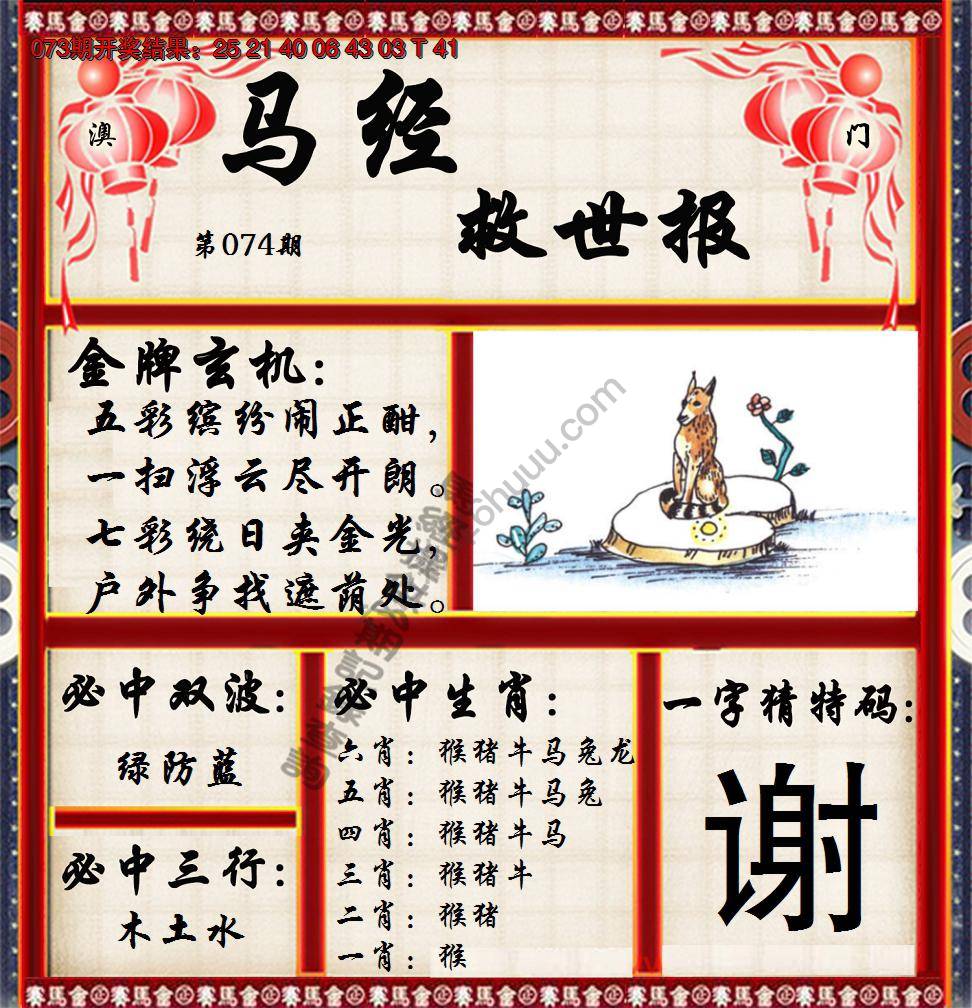 073期开奖结果：25 21 40 06 43 03 T 41
澳 门
马经
救世报
第074期
金牌玄机：
五彩缤纷闹正酣，
一扫浮云尽开朗。
七彩绕日夹金光，
户外争找遮荫处。
必中双波：
绿防蓝
必中三行：
木土水
必中生肖：
六肖：猴猪牛马兔龙
五肖：猴猪牛马兔
四肖：猴猪牛马
三肖：猴猪牛
二肖：猴猪
一肖：猴
一字猜特码：
谢